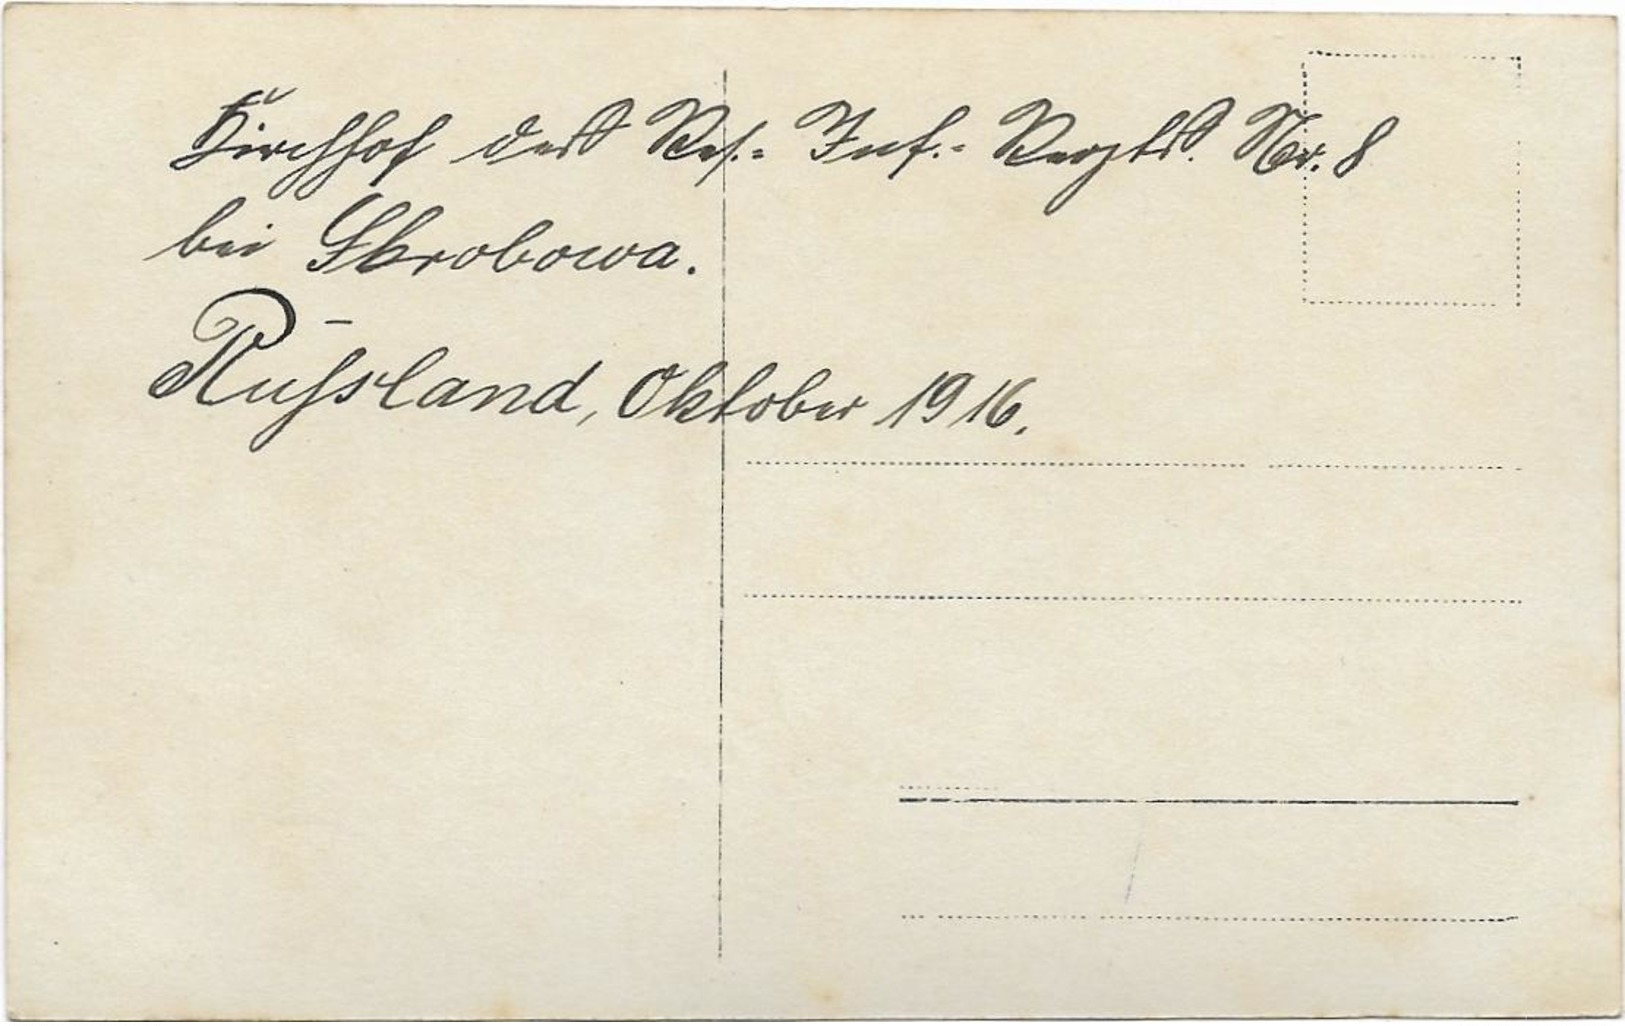 Kirchhof des Res.- Inf.- Regts. Nr. 8
bei Skrobowa.
Russland, Oktober 1916.